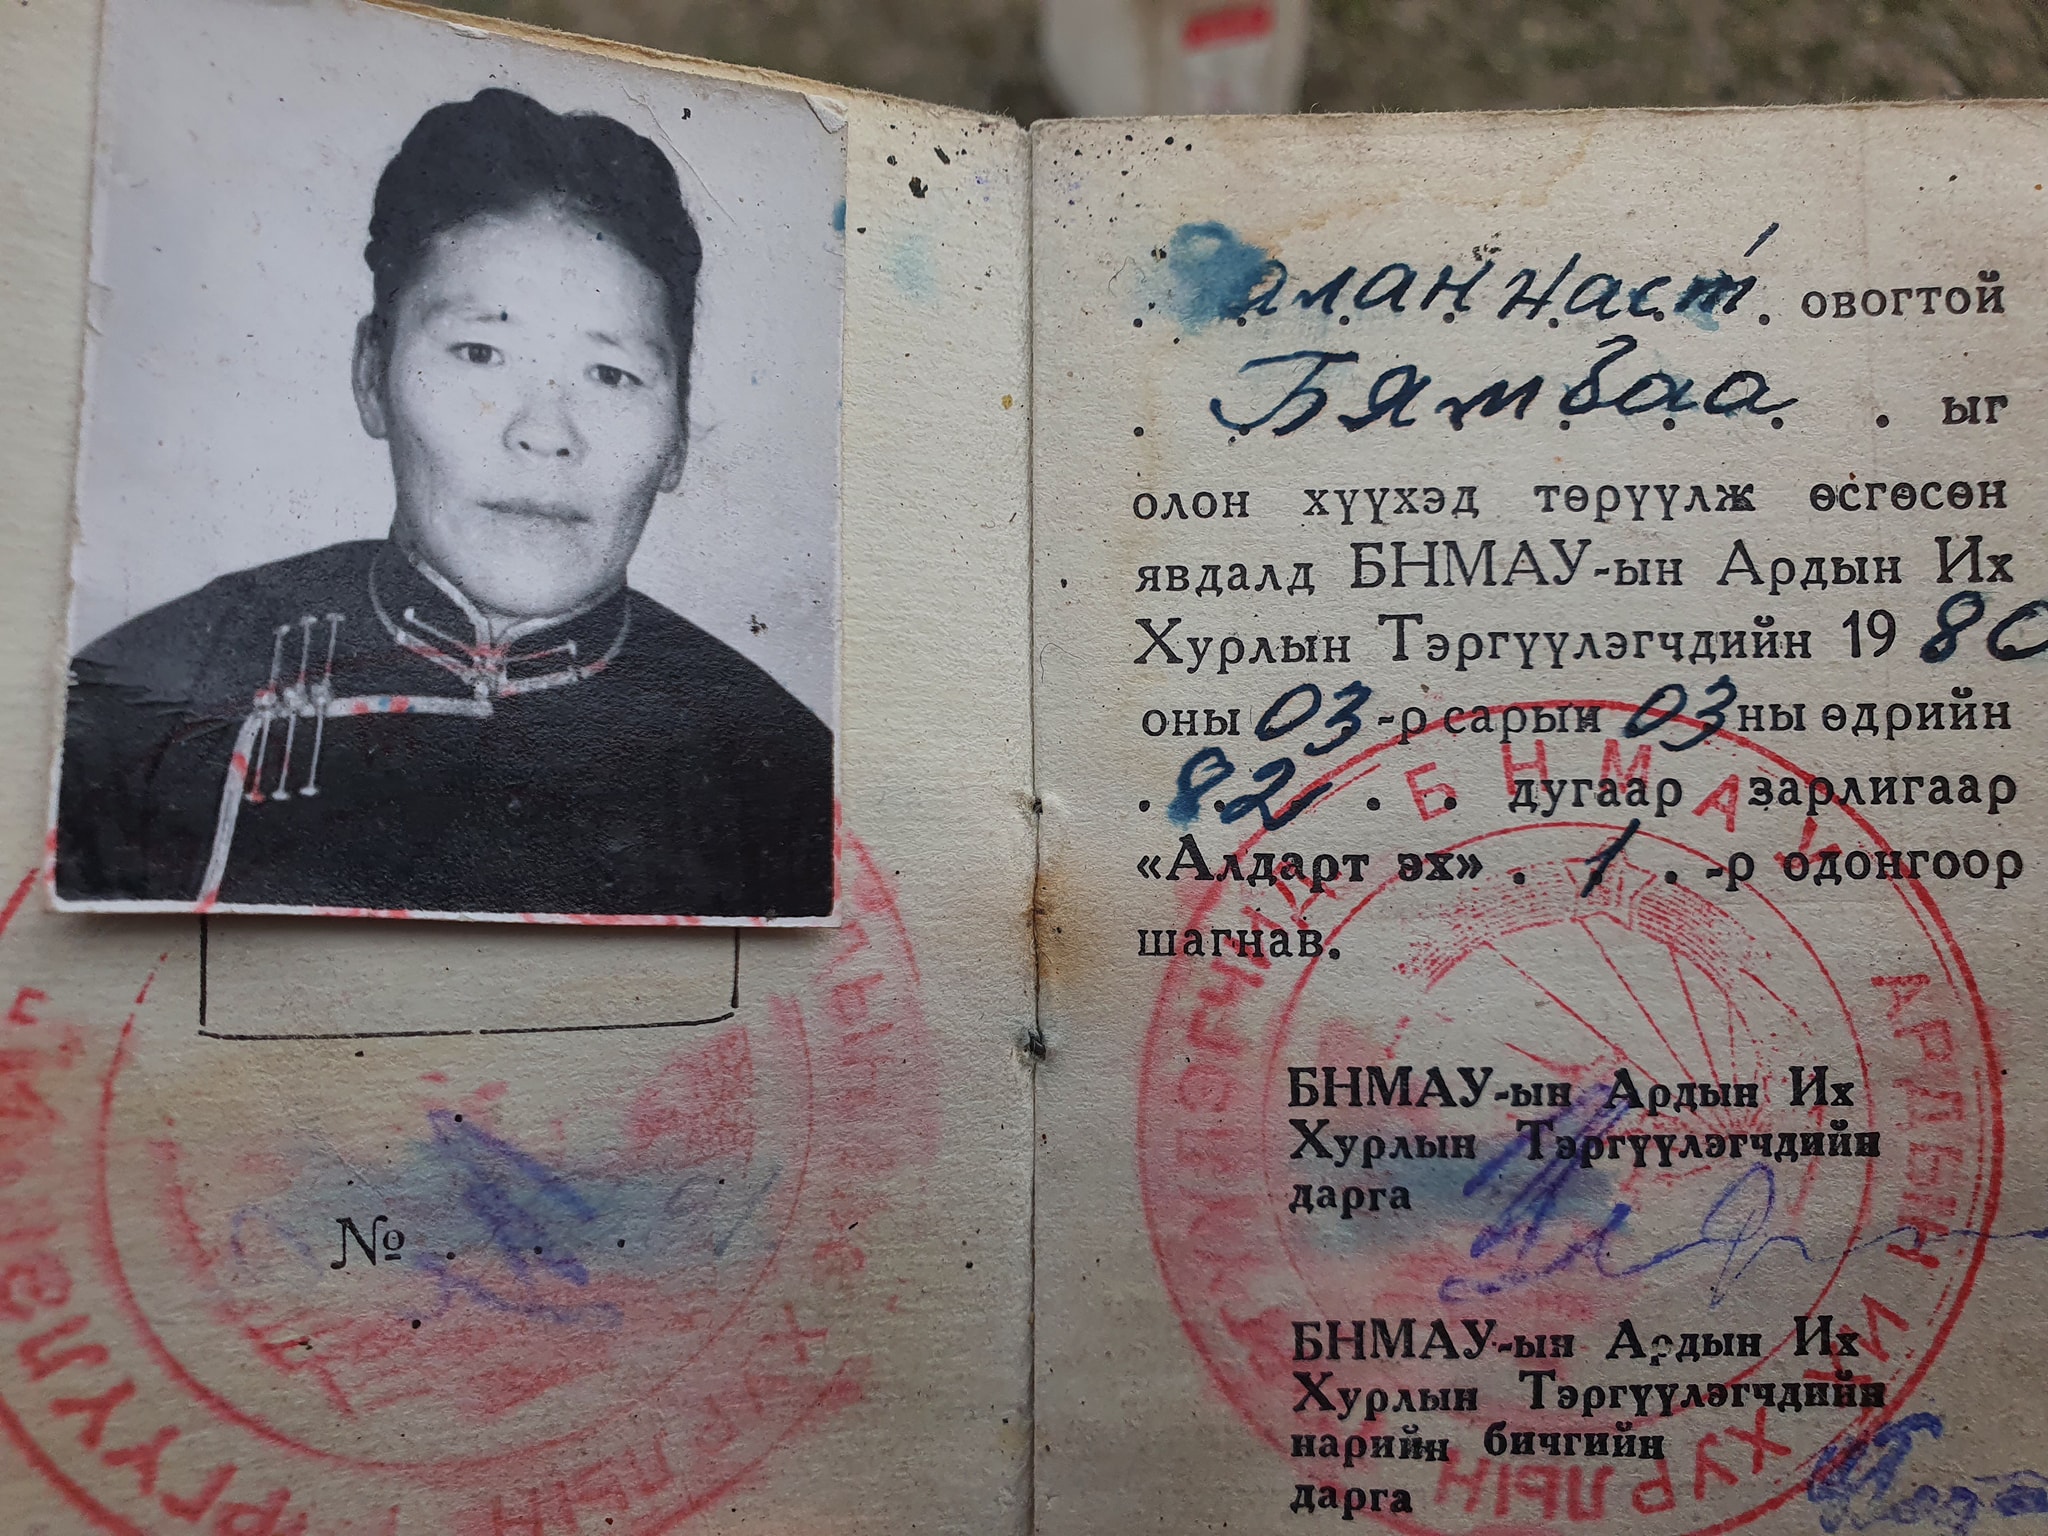 овогтой
Бямбаа ыг
олон хүүхэд төрүүлж өсгөсөн
явдалд БНМАУ-ын Ардын Их
Хурлын Тэргүүлэгчдийн 1980
оны 03-р сарын 03ны өдрийн
82 дугаар зарлигаар
«Алдарт эх» 1-р одонгоор
шагнав.
БНМАУ-ын Ардын Их
Хурлын Тэргүүлэгчдийн
дарга
БНМАУ-ын Ардын Их
Хурлын Тэргүүлэгчдийн
нарийн бичгийн
дарга
№
БНМАУ АРДЫН ИХ ХУРЛЫН